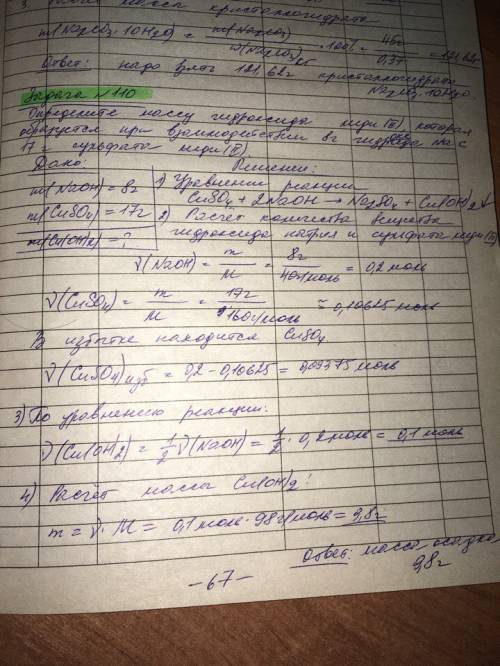 3. масса кристаллогидрата
m(Na2CO3 · 10H2O) = m(Na2CO3) / W(Na2CO3) · 100% = 45г / 0,37 = 121,62г
Ответ: надо взять 121,62г кристаллогидрата
Na2CO3·10H2O
Задача №110
Определите массу гидроксида меди (II) которая
образуется при взаимодействии 8г гидроксида Na с
17 г сульфата меди (II)
Дано: Решение:
m(NaOH) = 8г 1) Уравнение реакции
CuSO4 + 2NaOH → Na2SO4 + Cu(OH)2↓
m(CuSO4) = 17г 2) Расчет количества вещества
m(Cu(OH)2) - ? гидроксида натрия и сульфата меди (II)
ν(NaOH) = m / M = 8г / 40г/моль = 0,2 моль
ν(CuSO4) = m / M = 17г / 160г/моль = 0,10625 моль
В избытке находится CuSO4
ν(CuSO4)изб = 0,2 - 0,10625 = 0,09375 моль
3) По уравнению реакции:
ν(Cu(OH)2) = 1/2 ν(NaOH) = 1/2 · 0,2 моль = 0,1 моль
4) Расчёт массы Cu(OH)2:
m = ν · M = 0,1 моль · 98г/моль = 9,8г
Ответ: масса осадка
9,8г
-67-